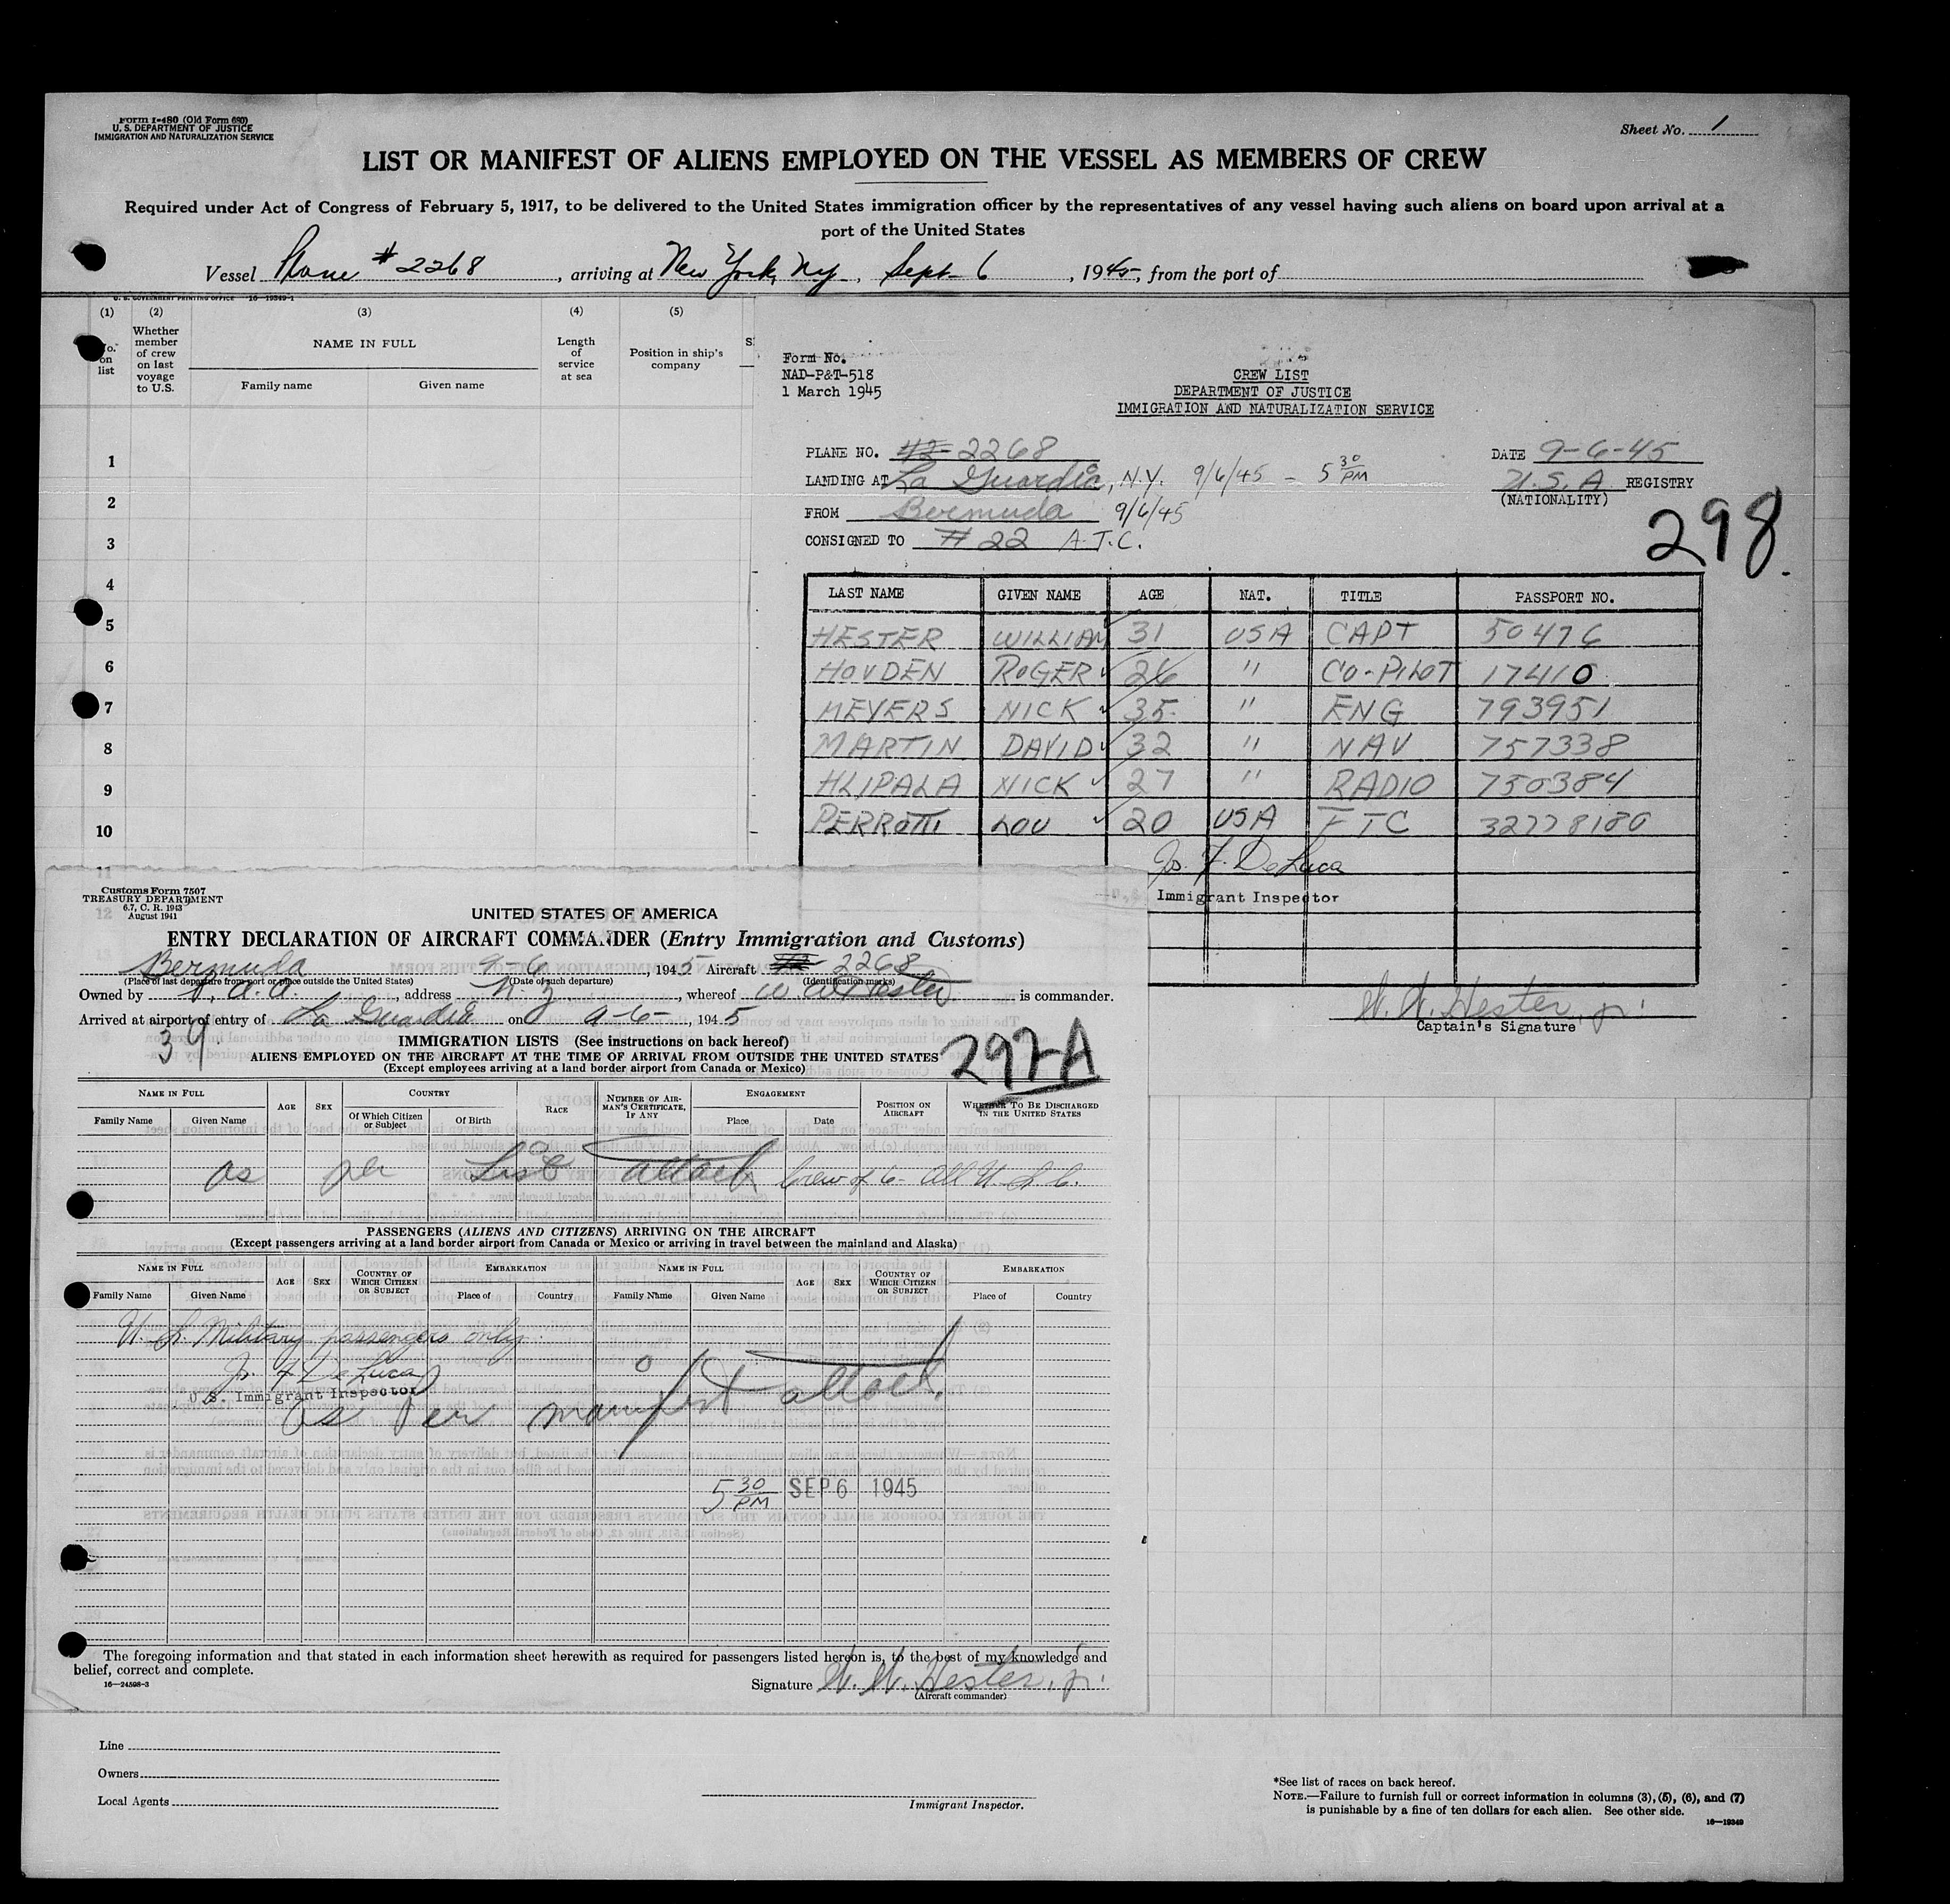 Form I-480 (Old Form 680)
U. S. DEPARTMENT OF JUSTICE
IMMIGRATION AND NATURALIZATION SERVICE
Sheet No. 1
LIST OR MANIFEST OF ALIENS EMPLOYED ON THE VESSEL AS MEMBERS OF CREW
Required under Act of Congress of February 5, 1917, to be delivered to the United States immigration officer by the representatives of any vessel having such aliens on board upon arrival at a
port of the United States
Vessel Plane # 2268, arriving at New York, Ny., Sept. 6, 1945, from the port of
U. S. GOVERNMENT PRINTING OFFICE 16-19349-1
(1) (2) (3) (4) (5)
No. on list
Whether member of crew on last voyage to U.S.
NAME IN FULL
Family name Given name
Length of service at sea
Position in ship's company
1
2
3
4
5
6
7
8
9
10
11
12
Form No.
NAD-P&T-518
1 March 1945
CREW LIST
DEPARTMENT OF JUSTICE
IMMIGRATION AND NATURALIZATION SERVICE
PLANE NO. 42-2268 DATE 9-6-45
LANDING AT La Guardia, N.Y. 9/6/45 - 5 30 PM U.S.A. REGISTRY
(NATIONALITY)
FROM Bermuda 9/6/45
CONSIGNED TO # 22 A.T.C.
298
LAST NAME GIVEN NAME AGE NAT. TITLE PASSPORT NO.
HESTER WILLIAM 31 USA CAPT 50476
HOVDEN ROGER 26 " CO-PILOT 17410
MEYERS NICK 35 " ENG 793951
MARTIN DAVID 32 " NAV 757338
HLIPALA NICK 27 " RADIO 750384
PERROTTI LOU 20 USA FTC 32778180
Jos. F. DeLuca
Immigrant Inspector
W. W. Hester, jr.
Captain's Signature
Customs Form 7507
TREASURY DEPARTMENT
6.7, C. R. 1943
August 1941
UNITED STATES OF AMERICA
ENTRY DECLARATION OF AIRCRAFT COMMANDER (Entry Immigration and Customs)
Bermuda 9-6, 1945 Aircraft 42 2268
(Place of last departure from port or place outside the United States) (Date of such departure) (Identification marks)
Owned by P.A.A., address N.Y., whereof W. W. Hester is commander.
Arrived at airport of entry of La Guardia on 9-6-, 1945
39
IMMIGRATION LISTS (See instructions on back hereof)
ALIENS EMPLOYED ON THE AIRCRAFT AT THE TIME OF ARRIVAL FROM OUTSIDE THE UNITED STATES
(Except employees arriving at a land border airport from Canada or Mexico)
297-A
NAME IN FULL AGE SEX COUNTRY RACE NUMBER OF AIRMAN'S CERTIFICATE, IF ANY ENGAGEMENT POSITION ON AIRCRAFT WHETHER TO BE DISCHARGED IN THE UNITED STATES
Family Name Given Name Of Which Citizen or Subject Of Birth Place Date
as per List attach Crew of 6- All U. S. C.
PASSENGERS (ALIENS AND CITIZENS) ARRIVING ON THE AIRCRAFT
(Except passengers arriving at a land border airport from Canada or Mexico or arriving in travel between the mainland and Alaska)
NAME IN FULL AGE SEX COUNTRY OF WHICH CITIZEN OR SUBJECT EMBARKATION NAME IN FULL AGE SEX COUNTRY OF WHICH CITIZEN OR SUBJECT EMBARKATION
Family Name Given Name Place of Country Family Name Given Name Place of Country
U. S. Military passengers only.
Jos. F. DeLuca
U. S. Immigrant Inspector
As Per manifest attach.
5 30 PM SEP 6 1945
The foregoing information and that stated in each information sheet herewith as required for passengers listed hereon is, to the best of my knowledge and
belief, correct and complete.
16-24598-3
Signature W. W. Hester, jr.
(Aircraft commander)
Line
Owners
Local Agents
Immigrant Inspector.
*See list of races on back hereof.
NOTE.—Failure to furnish full or correct information in columns (3), (5), (6), and (7)
is punishable by a fine of ten dollars for each alien. See other side.
16-19349